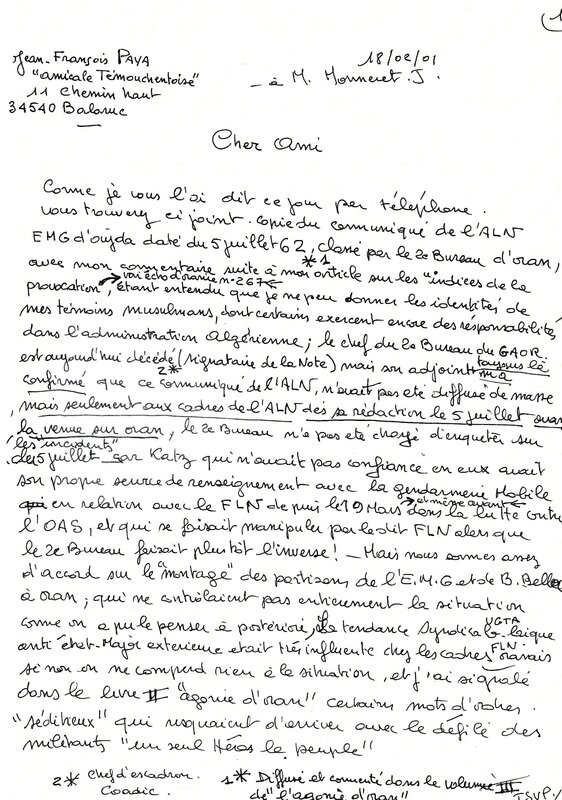 1
Jean-François PAYA
"amicale Témouchentoise"
11 Chemin haut
34540 Balaruc
18/02/01
– à M. Monneret. J.
Cher Ami
Comme je vous l'ai dit ce jour par téléphone.
vous trouverez ci joint. copie du communiqué de l'ALN
EMG d'oujda daté du 5 juillet 62, classé par le 2e Bureau d'oran,
*1
avec mon commentaire suite à mon article sur les "indices de la
voir écho d'oranie n° 267
provocation", étant entendu que je ne peu donner les identités de
mes témoins musulmans, dont certains exercent encore des résponsabilités
dans l'administration Algérienne; le chef du 2e Bureau du GAOR.
est aujourd'hui décédé (signataire de la Note) mais son adjoint m'a toujours
2*
confirmé que ce communiqué de l'ALN, n'avait pas eté diffusé de masse
, mais seulement aux cadres de l'ALN dés sa rédaction le 5 juillet avant
la venue sur oran, le 2e Bureau n'a pas eté chargé d'enqueter sur
les "incidents"
du 5 juillet – car Katz qui n'avait pas confiance en eux avait
son propre source de renseignement avec la gendarmerie Mobile
et même avant
en relation avec le FLN depuis le 19 Mars dans la lutte contre
l'OAS, et qui se faisait manipuler par le dit FLN alors que
le 2e Bureau faisait plutôt l'inverse! – Mais nous sommes assez
d'accord sur le "montage" des partisans de l'E.M.G et de B. Bella
à oran; qui ne contrôlaient pas entierement la situation
comme on a pu le penser à postériori, la tendance Syndicale laique
UGTA
anti état-Major exterieure etait très influente chez les cadres oranais
FLN
si non on ne comprend rien à la situation, et j'ai signalé
dans le livre II "agonie d'oran" certains mots d'ordres
"séditieux" qui risquaient d'arriver avec le défilé des
militants "un seul Héros le peuple"
2* Chef d'escadron.
Coadic.
1* Diffusé et commenté dans le volume III
de "l'agonie d'oran"
TSVP/